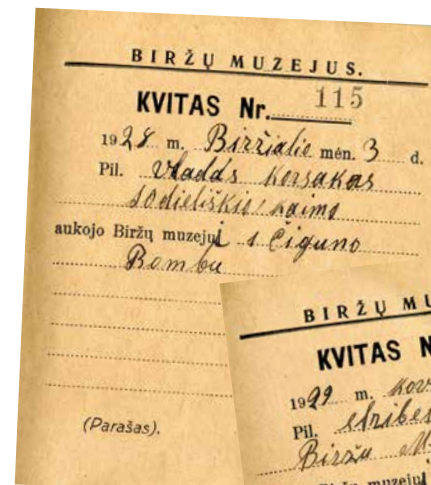 BIRŽŲ MUZEJUS.
KVITAS Nr. 115
1928 m. Birželio mėn. 3 d.
Pil. Vladas Korsakas
Sodieliškio kaimo
aukojo Biržų muzejui 1 Čiguno
Bombu
(Parašas).
BIRŽŲ MU
KVITAS N
1929 m. Kov
Pil.
Biržu
muzejui